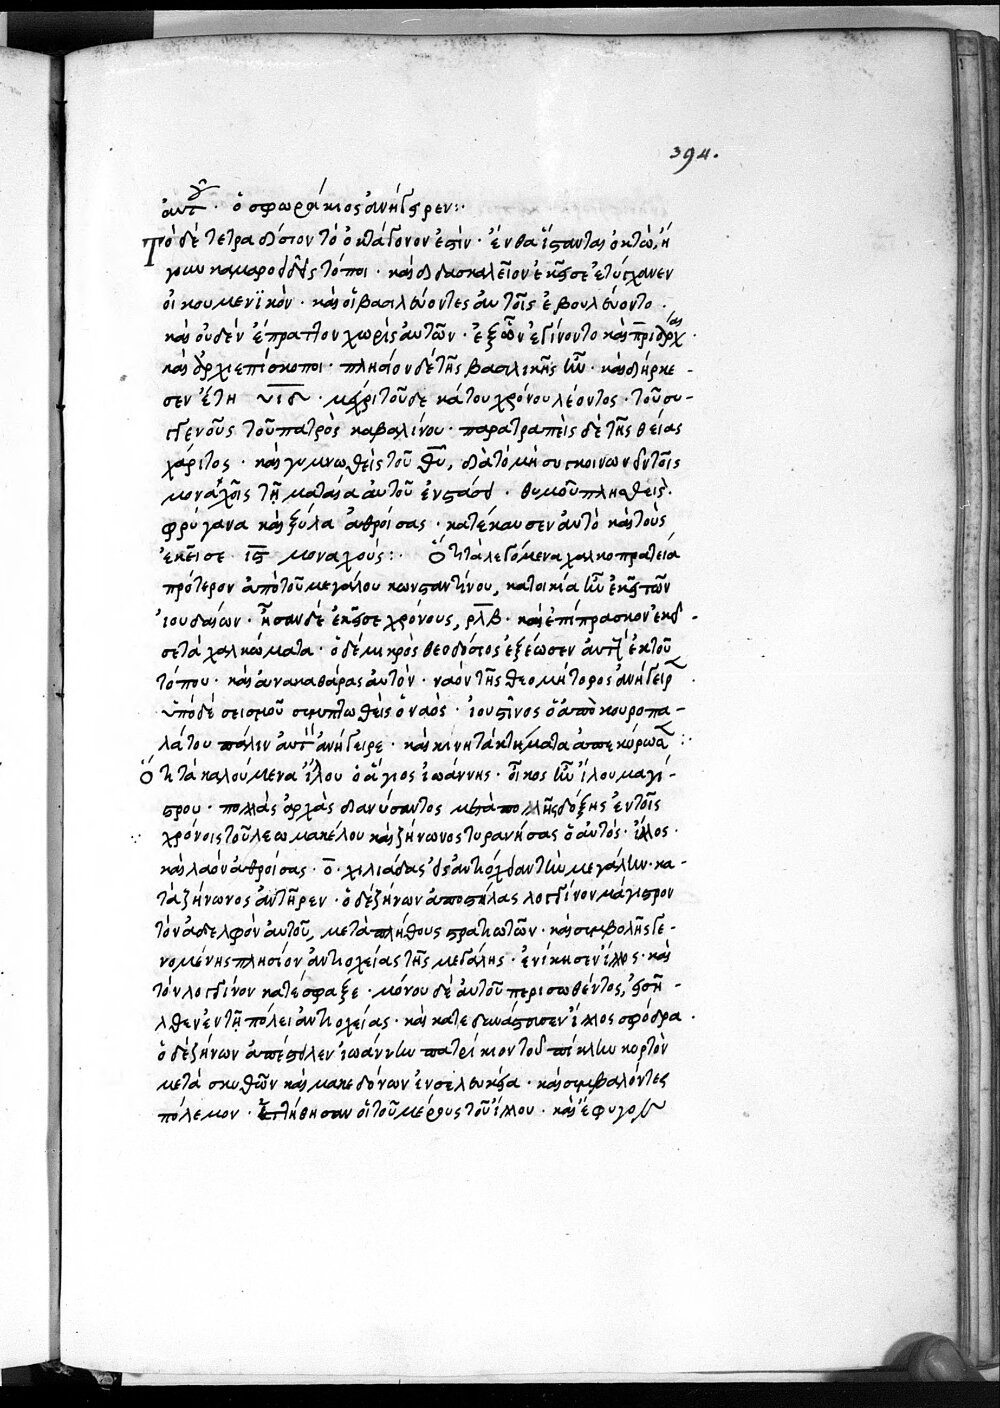 394.
αὐτοῦ · ὁ σφωράκιος ἀνήγειρεν :·
Τὸ δὲ τετραδίσιον τὸ ὀκτάγονον ἐστὶν · ἔνθα ἵσανται ὀκτὼ, ἤ
γουν καμαροειδεῖς τόποι · καὶ διδασκαλεῖον ἐκεῖσε ἐτύγχανεν
οἰκουμενϊκὸν · καὶ οἱ βασιλεύοντες αὐτοῖς ἐβουλεύοντο ·
καὶ οὐδὲν ἔπραττον χωρὶς αὐτῶν · ἐξ ὧν ἐγίνοντο καὶ πριάρχαι ·
καὶ ἀρχιεπίσκοποι · πλησίον δὲ τῆς βασιλικῆς ἦν · καὶ διήρκε-
σεν ἔτη υιδ · μέχρι τοῦ δεκάτου χρόνου λέοντος · τοῦ συ-
γγενοῦς τοῦ πατρὸς καβαλίνου · παρατραπεὶς δὲ τῆς θείας
χάριτος · καὶ γυμνωθεὶς τοῦ θυ, διὰ τὸ μὴ συγκοινωνεῖν τοῖς
μοναχοῖς τῇ ματαία αὐτοῦ ἐνστάσει · θυμοῦ πλησθεὶς ·
φρύγανα καὶ ξύλα ἀθροίσας · κατέκαυσεν αὐτὸ καὶ τοὺς
ἐκεῖσε ις μοναχούς :· Ὅτι τὰ λεγόμενα χαλκοπρατεῖα
πρότερον ἀπὸ τοῦ μεγάλου κωνσταντίνου, κατοικία ἦν ἐκεῖ τῶν
ἰουδαίων · ἦσαν δὲ ἐκεῖσε χρόνους, ρλβ · καὶ ἐπίπρασκον ἐκεῖ-
σε τὰ χαλκώματα · ὁ δὲ μικρὸς θεοδόσιος ἐξέωσεν αὐτοὺς ἐκ τοῦ
τόπου · καὶ ἀνακαθάρας αὐτὸν · ναὸν τῆς θεομήτορος ἀνήγειρεν ·
ὑπὸ δὲ σεισμοῦ συμπτωθεὶς ὁ ναὸς · ἰουστῖνος ὁ ἀπὸ κουροπα-
λάτου πάλιν αὐτὸν ἀνήγειρε · καὶ κινητὰ κτήματα ἀπεκύρωσεν :·
Ὅτι τὰ καλούμενα ἴλου ὁ ἅγιος ἰωάννης · οἶκος ἦν ἴλου μαγί-
στρου · πολλὰς ἀρχὰς διανύσαντος μετὰ πολλῆς δόξης ἐν τοῖς
χρόνοις τοῦ λεωμακέλου καὶ ζήνωνος τυρανήσας ὁ αὐτὸς · ἴλλος ·
καὶ λαὸν ἀθροίσας · ο · χιλιάδας εἰς ἀντιόχειαν τὴν μεγάλην · κα-
τὰ ζήνωνος ἀντῆρεν · ὁ δὲ ζήνων ἀποστείλας λογγίνον μάγιστρον
τὸν ἀδελφὸν αὐτοῦ, μετὰ πλήθους στρατιωτῶν · καὶ συμβολῆς γε-
νομένης πλησίον ἀντιοχείας τῆς μεγάλης · ἐνίκησεν ἴλλος · καὶ
τὸν λογγίνον κατέσφαξε · μόνου δὲ αὐτοῦ περισωθέντος, εἰσῆ-
λθεν ἐν τῇ πόλει ἀντιοχείας · καὶ κατεδυνάστευσεν ἴλλος σφόδρα ·
ὁ δὲ ζήνων ἀπέστειλεν ἰωάννην πατρίκιον τοῦ πίκλην κορτὸν
μετὰ σκυθῶν καὶ μακεδόνων ἐν σελευκεία · καὶ συμβαλόντες
πόλεμον · ἡττήθησαν οἱ τοῦ μέρους τοῦ ἴλλου · καὶ ἔφυγον